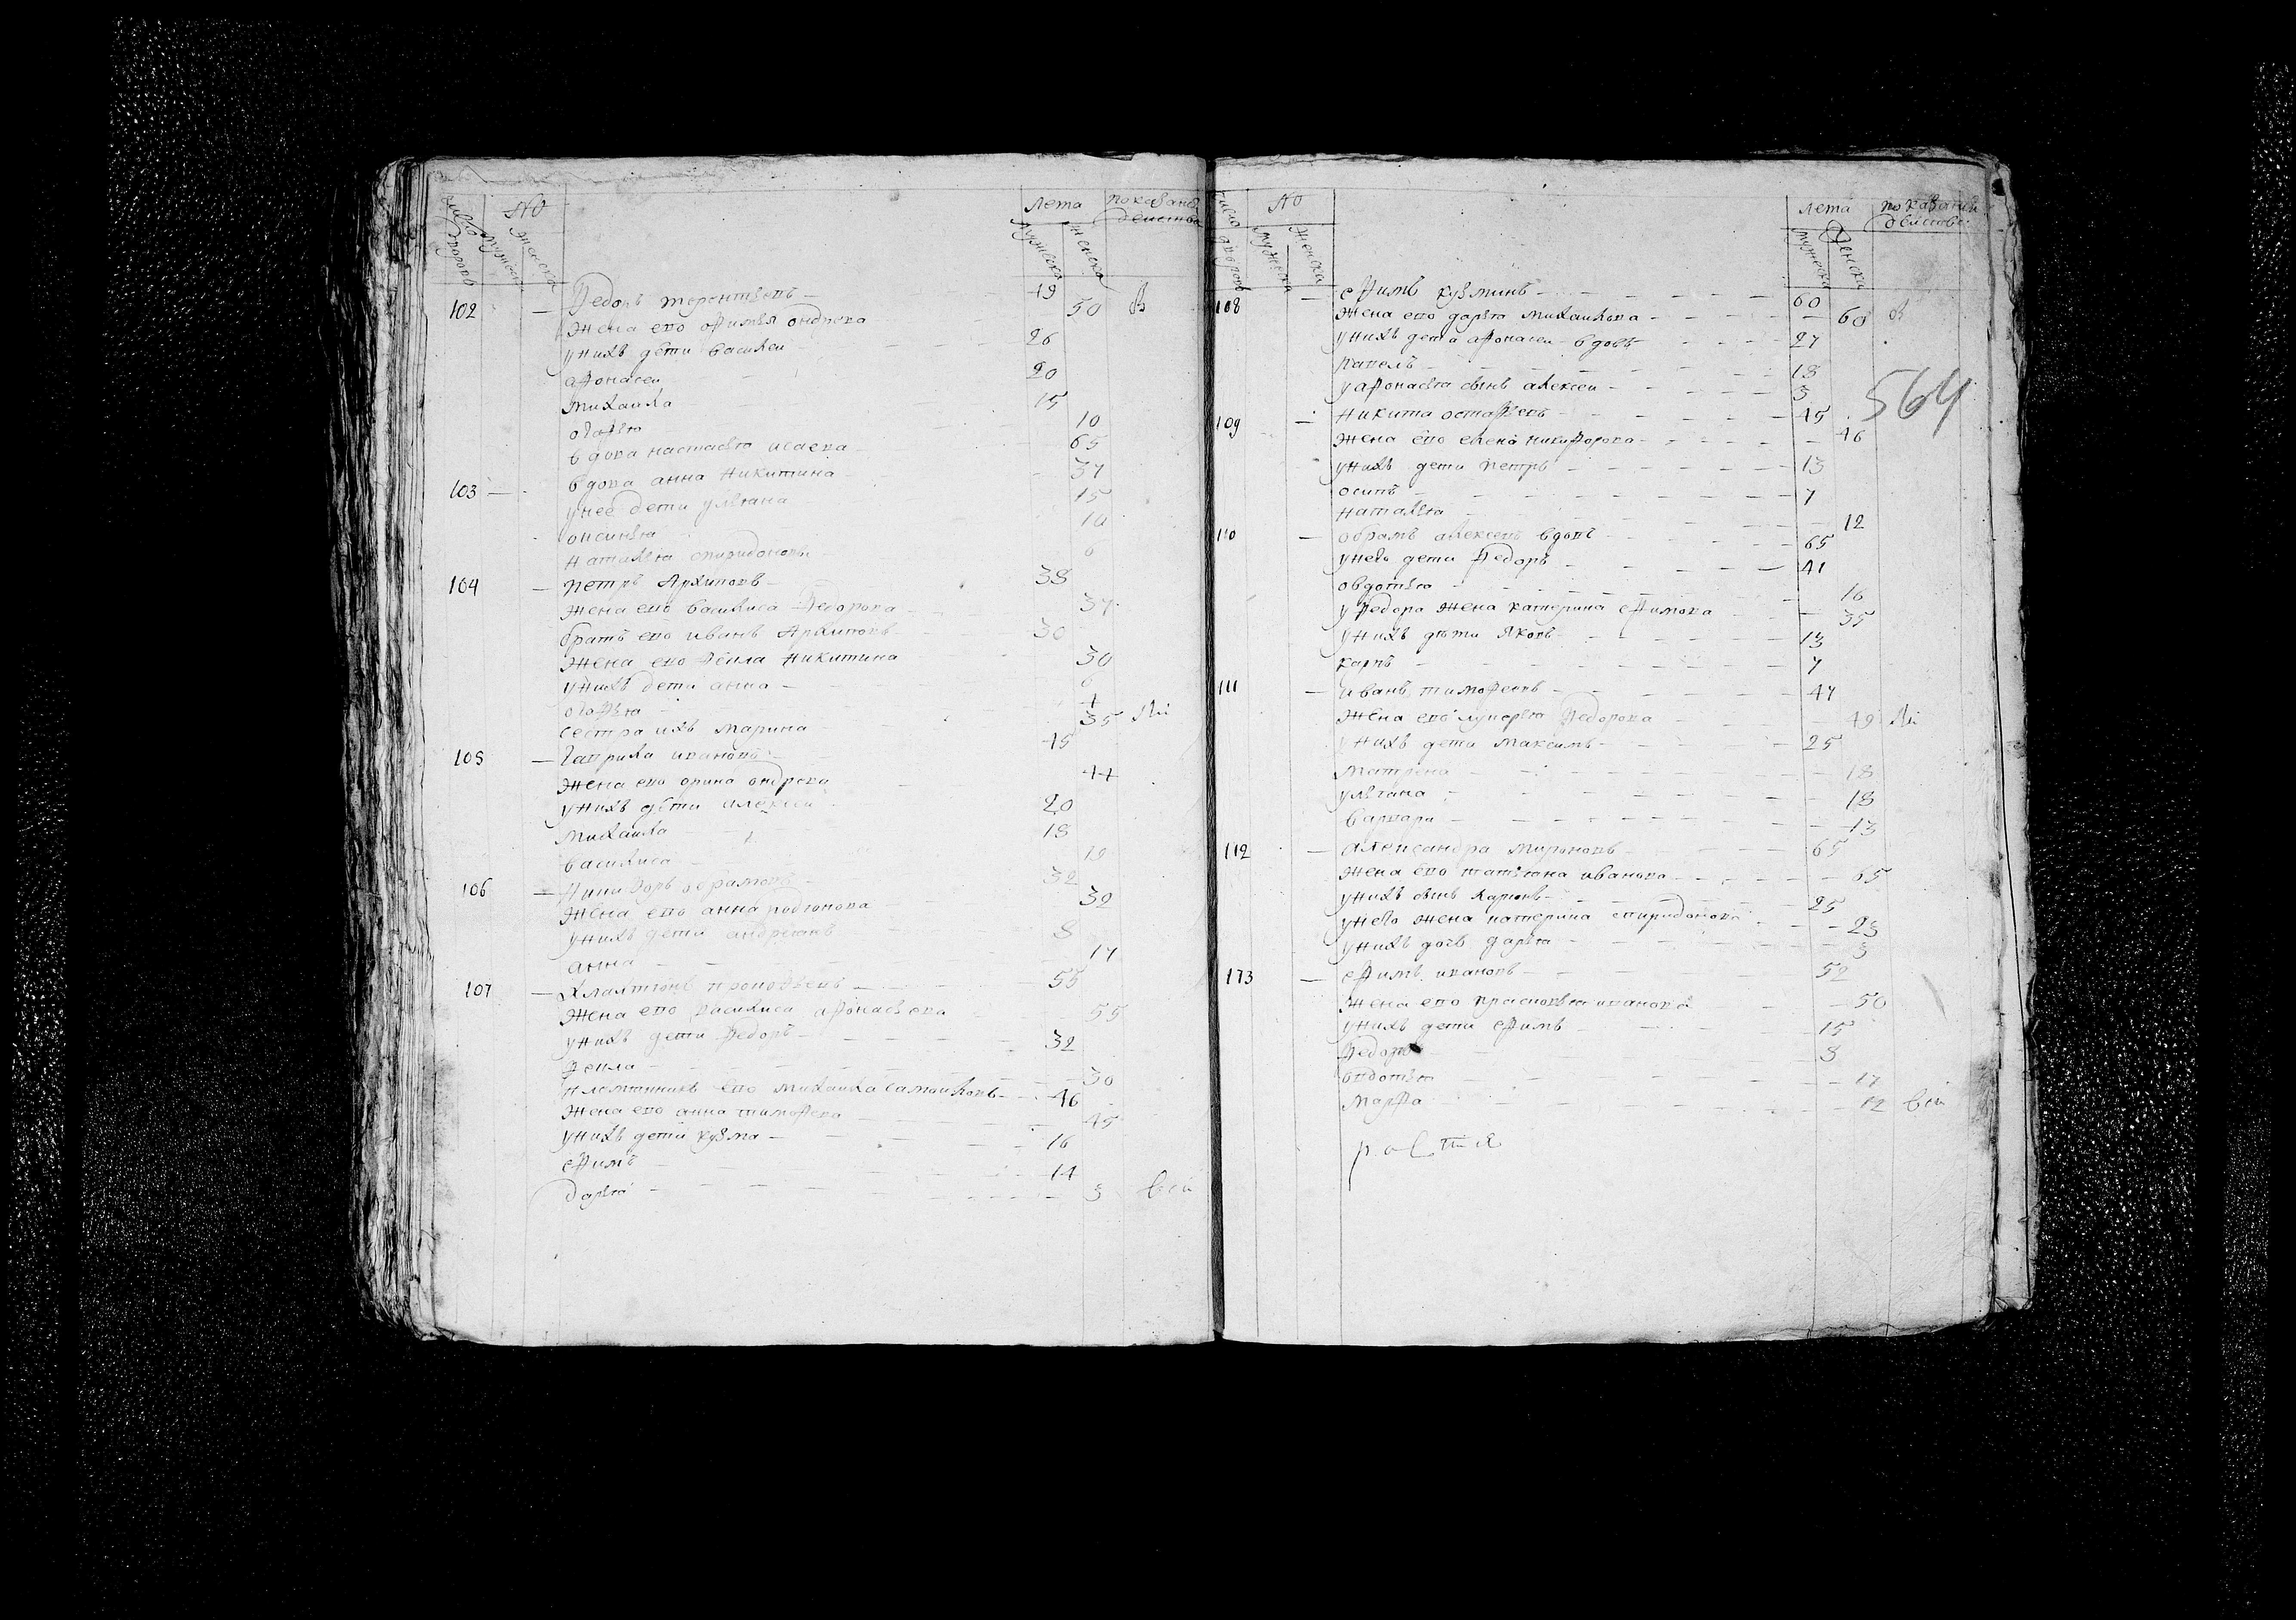 число дворовъ № мужеска женска лета мужеска женска показание действа
102 — Федоръ терентьевъ — 49
жена ево офимья ондреева 50 в
у нихъ дети василеи 26
афонасеи 20
михаила 15
огафья 10
вдова настасья исаева 65
103 — вдова анна никитина 37
у нее дети ульяна 15
оксинья 10
наталья спиридоновы 6
104 — петръ Архиповъ — 38
жена ево василиса Федорова 37
братъ ево иванъ Архиповъ 30
жена ево фекла никитина 30
у нихъ дети анна — 6
огафья 4
сестра ихъ марина 35
105 — гаврила ивановъ 45
жена ево орина ондреева 44
у нихъ дети алексеи 20
михаила 18
василиса 19
106 — никифоръ обрамовъ 32
жена ево анна родионова 32
у нихъ дети андреянъ 8
анна 17
107 — прокофьевъ 55
жена ево василиса афонасьева 55
у нихъ дети Федоръ 32
фекла 30
племянникъ ево михаила самоиловъ 46
жена ево анна тимофеева 45
у нихъ дети кузма — 16
ефимъ 14
дарья 3
число дворовъ № мужеска женска лета мужеска женска показании действе
108 — ефимъ кузминъ 60
жена ево дарья михаилова 60 в
у нихъ дети афонасеи вдовъ 27
павелъ 18
у афонасья сынъ алексеи 3
564
109 — никита остафьевъ 45
жена ево елена никифорова 46
у нихъ дети петръ 13
осипъ 7
наталья 12
110 — обрамъ алексеевъ вдовъ 65
у него дети Федоръ 41
овдотья 16
у Федора жена катерина ефимова 35
у нихъ дети яковъ 13
карпъ 7
111 — иванъ тимофеевъ 47
жена ево лукерья Федорова 49
у нихъ дети максимъ 25
матрена 18
ульяна 18
варвара 13
112 — александра мироновъ 65
жена ево татьяна иванова 65
у нихъ сынъ ларионъ 25
у него жена катерина спиридонова 23
у нихъ дочь дарья 3
173 — ефимъ ивановъ 52
жена ево прасковья иванова 50
у нихъ дети ефимъ 15
Федоръ 3
овдотья 17
марфа 12